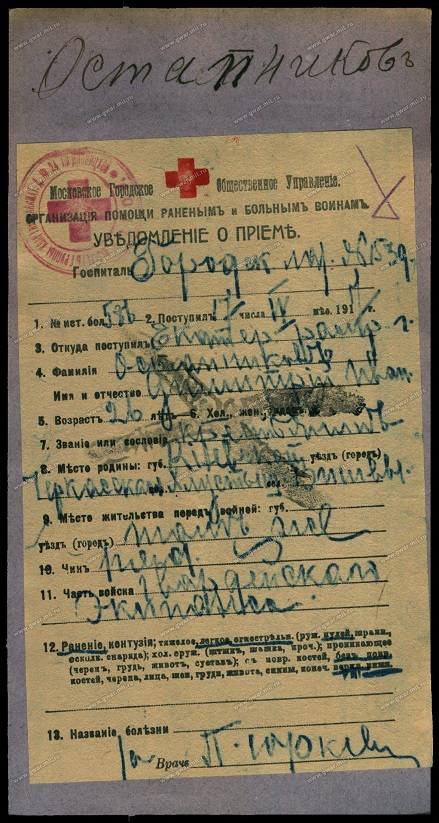 Остапниковъ
Московское Городское Общественное Управленіе.
ОРГАНИЗАЦІЯ ПОМОЩИ РАНЕНЫМЪ И БОЛЬНЫМЪ ВОИНАМЪ.
УВѢДОМЛЕНІЕ О ПРІЕМѢ.
Госпиталь Городск лаз. №1539.
1. № ист. бол. 536 2. Поступилъ 17 числа IV мѣс. 191
3. Откуда поступилъ Екатер. распр. г.
4. Фамилія Остапниковъ
Имя и отчество Дмитрій Иван.
5. Возрастъ 26 лѣтъ 6. Хол., жен.,
7. Званіе или сословіе крестьянинъ
8. Мѣсто родины: губ. Кіевской уѣздъ (городъ)
Черкасскаго вол.
9. Мѣсто жительства передъ войной: губ.
уѣздъ (городъ) тамъ же
10. Чинъ ряд.
11. Часть войска Гвардейскаго
Экипажа.
12. Раненіе, контузія; тяжелое, легкое огнестрѣльн. (руж. пулей, шрапн.,
осколк. снаряда); хол. оруж. (штыкъ, шашка, проч.); проникающее
(черепъ, грудь, животъ, суставъ); съ повр. костей, безъ повр.
костей, черепа, лица, шеи, груди, живота, спины, конеч. верхн. нижн.
13. Названіе болѣзни
За Врачъ П. Юркев